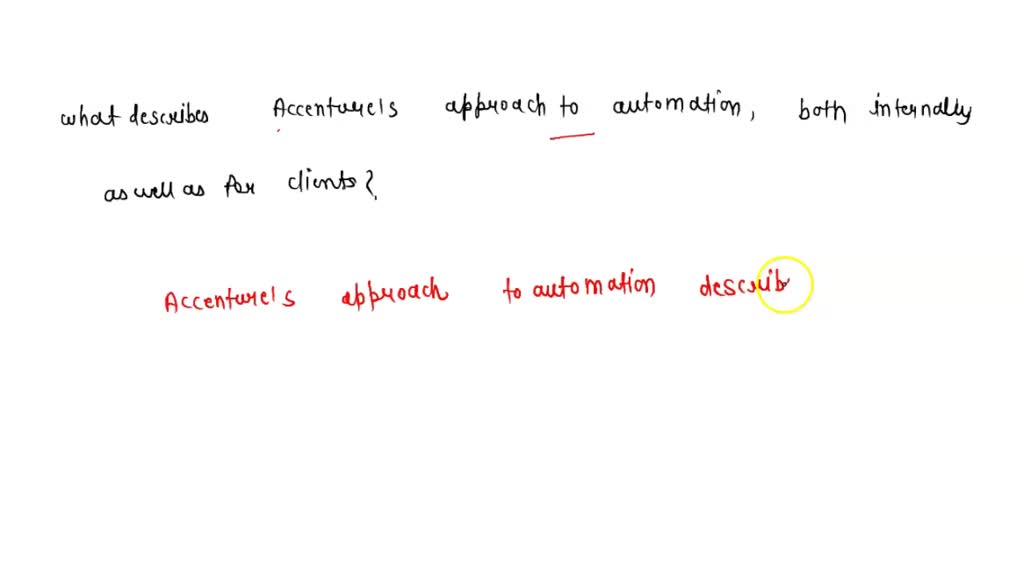 what describes Accenture's approach to automation, both internally
as well as for clients?
Accenture's approach to automation describ